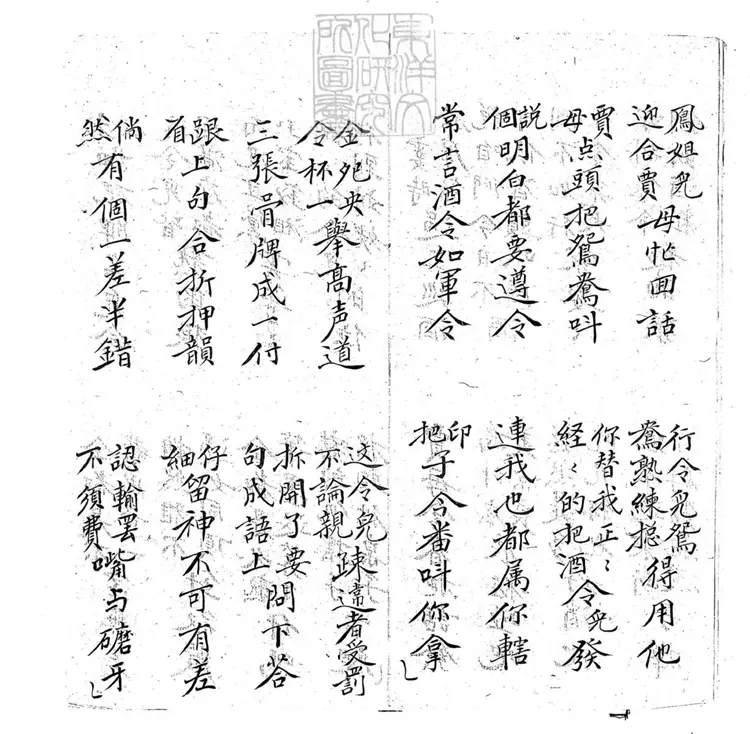 東洋文化研究所圖書
鳳姐児迎合賈母忙囬話
行令児鴛鴦熟練揔得用他
賈母点頭把鴛鴦呌
你替我正〻経〻的把酒令児發
説個明白都要遵令
連我也都属你轄
常言酒令如軍令
印把子今番呌你拿
金夗央令杯一舉高声道
这令児不論親疎違者受罰
三張骨牌成一付
拆開了要句成語上問下荅
跟着上句合折押韻
仔細留神不可有差
倘然有個一差半錯
認輸罷不須費嘴与磨牙